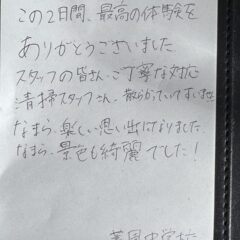 この2日間、最高の体験を
ありがとうございました
スタッフの皆さん、ご丁寧な対応
清掃スタッフさん、散らかっていてすいません
なまら、楽しい思い出になりました
なまら、景色も綺麗でした!
中学校